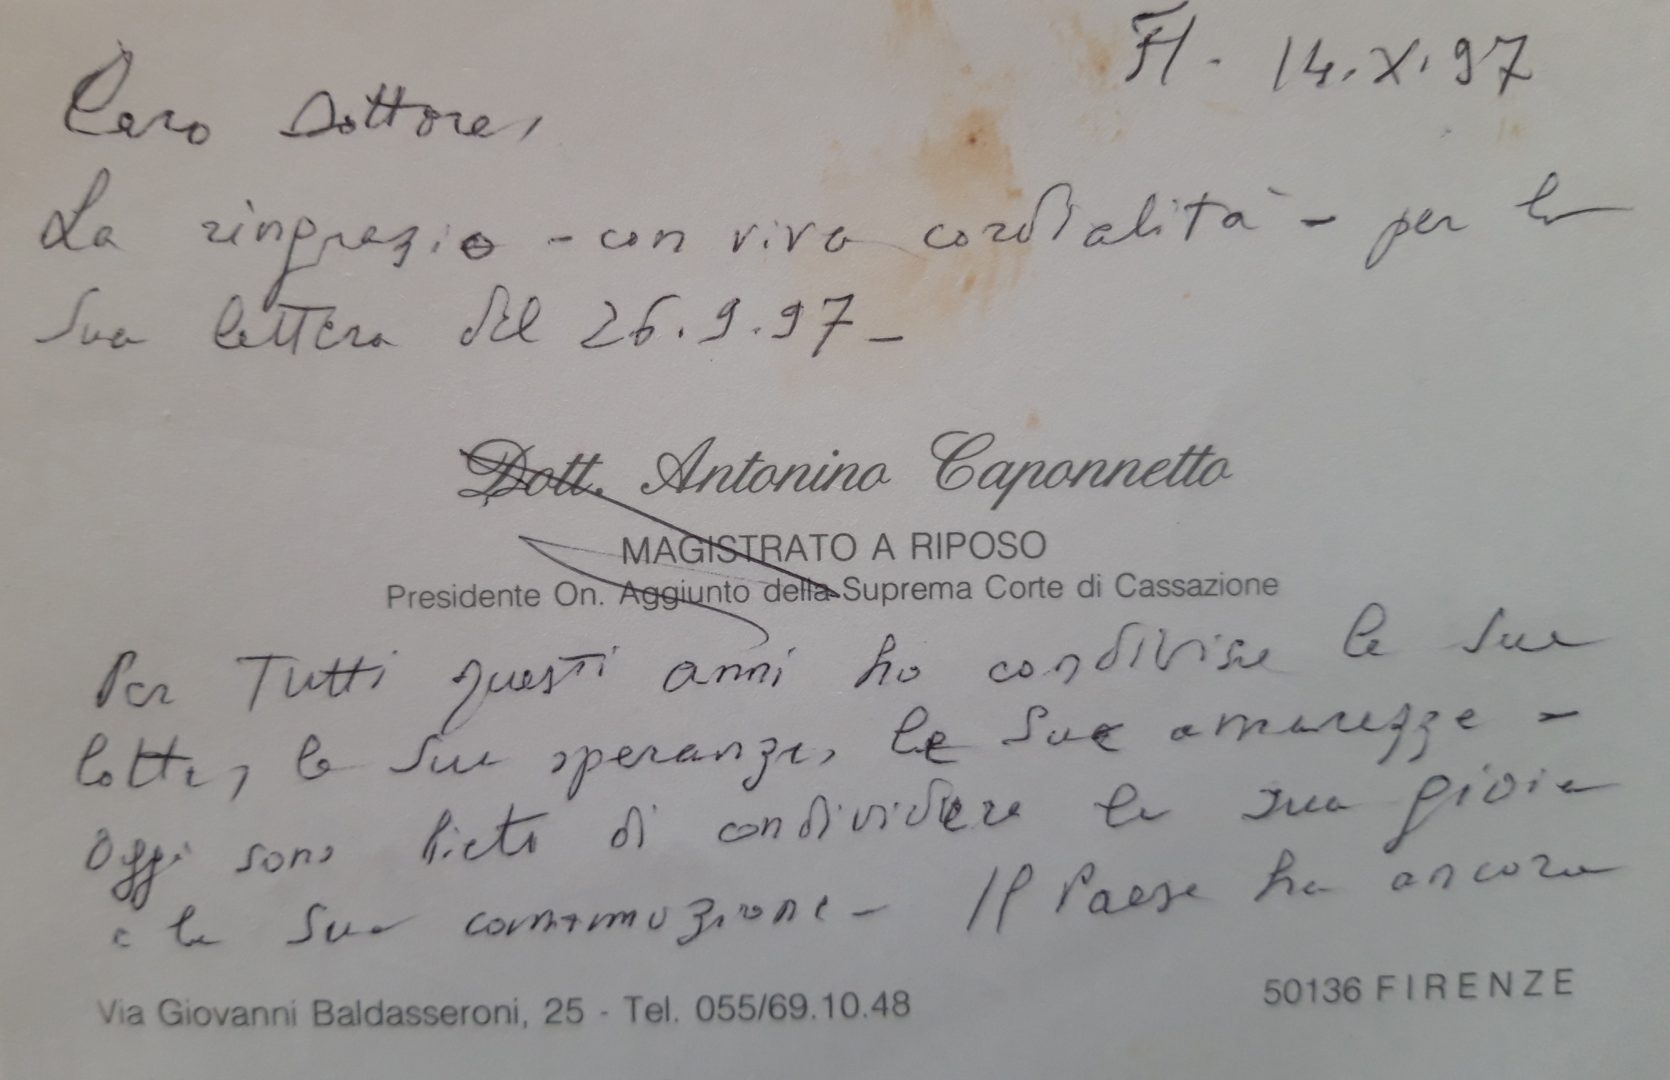 FI. 14.X.97
Caro Dottore,
La ringrazio - con viva cordialità - per la
Sua lettera del 26.9.97 -
Dott. Antonino Caponnetto
MAGISTRATO A RIPOSO
Presidente On. Aggiunto della Suprema Corte di Cassazione
Per Tutti questi anni ho condiviso le Sue
lotte, le Sue speranze, le Sue amarezze -
Oggi sono lieto di condividere la Sua gioia
e la Sua commozione - Il Paese ha ancora
Via Giovanni Baldasseroni, 25 - Tel. 055/69.10.48
50136 FIRENZE